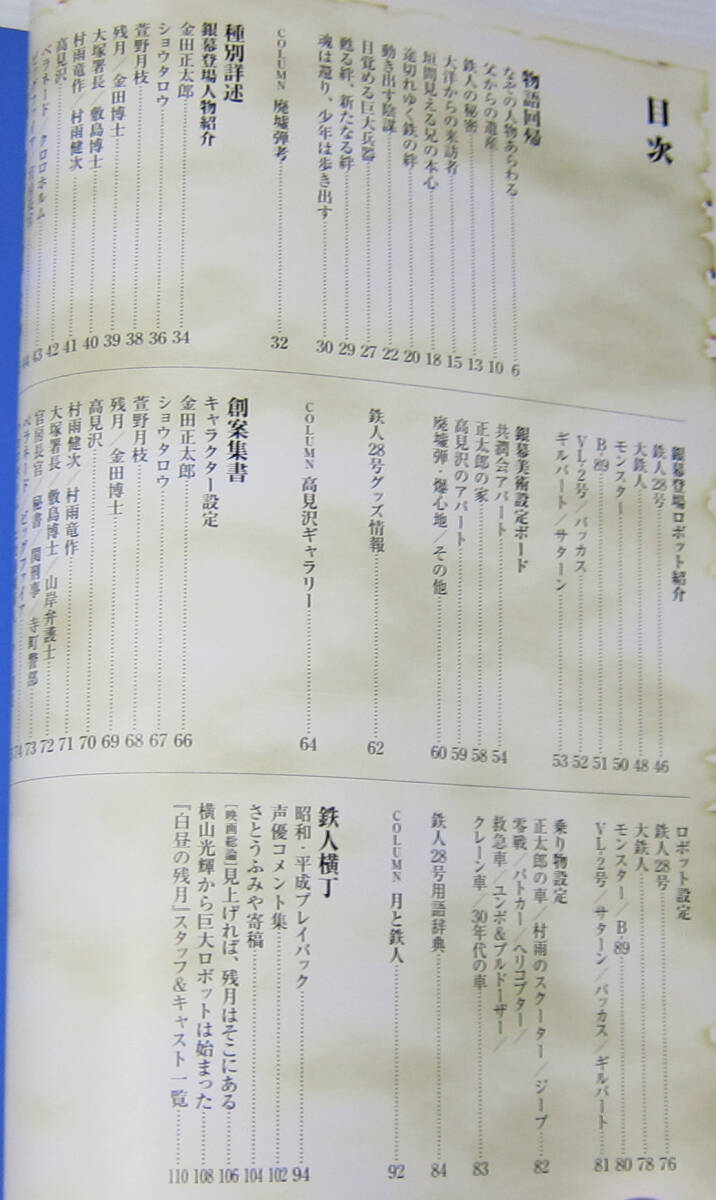 目次
物語回帰
なぞの人物あらわる 6
父からの遺産 10
鉄人の秘密 13
大洋からの来訪者 15
垣間見える兄の本心 18
途切れゆく鉄の絆 20
動き出す陰謀 22
目覚める巨大兵器 27
甦る絆、新たなる絆 29
魂は還り、少年は歩き出す 30
COLUMN 廃墟弾考 32
種別詳述
銀幕登場人物紹介
金田正太郎 34
ショウタロウ 36
萱野月枝 38
残月／金田博士 39
大塚署長／敷島博士 40
村雨竜作／村雨健次 41
高見沢 42
ベラネード／クロロホルム 43
銀幕登場ロボット紹介
鉄人28号 46
大鉄人 48
モンスター 50
B-89 51
VL-2号／バッカス 52
ギルバート／サターン 53
銀幕美術設定ボード
共潤会アパート 54
正太郎の家 58
高見沢のアパート 59
廃墟弾・爆心地／その他 60
鉄人28号グッズ情報 62
COLUMN 高見沢ギャラリー 64
創案集書
キャラクター設定
金田正太郎 66
ショウタロウ 67
萱野月枝 68
残月／金田博士 69
高見沢 70
村雨健次／村雨竜作 71
大塚署長／敷島博士／山岸弁護士 72
官房長官／秘書／関刑事／寺町警部 73
ベラネード／ビッグファイア 74
ロボット設定
鉄人28号 76
大鉄人 78
モンスター／B-89 80
VL-2号／サターン／バッカス／ギルバート 81
乗り物設定
正太郎の車／村雨のスクーター／ジープ 82
零戦／パトカー／ヘリコプター／
救急車／ユンボ&ブルドーザー／
クレーン車／30年代の車 83
鉄人28号用語辞典 84
COLUMN 月と鉄人 92
鉄人横丁
昭和・平成プレイバック 94
声優コメント集 102
さとうふみや寄稿 104
［映画総論］見上げれば、残月はそこにある 106
横山光輝から巨大ロボットは始まった 108
『白昼の残月』スタッフ&キャスト一覧 110